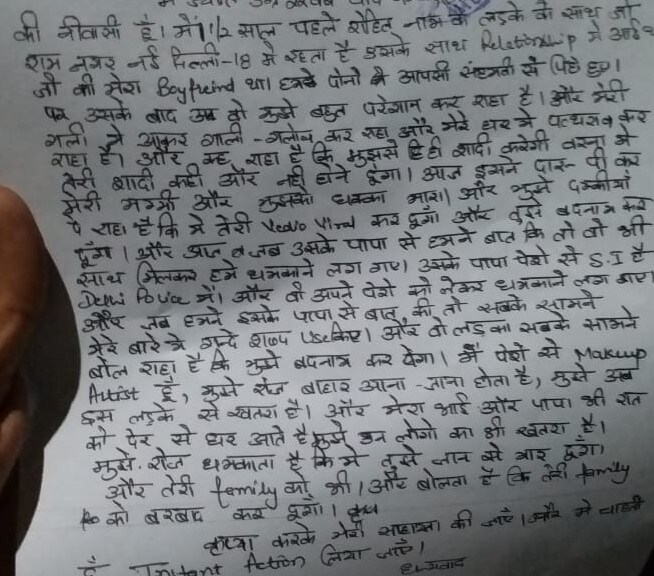 की नीवासी है। मैं 1 1/2 साल पहले रोहित नाम के लड़के के साथ जो
राम नगर नई दिल्ली-18 मे रहता है उसके साथ Relationship मे आई थी
जो की मेरा Boyfreind था। हमारे दोनो के आपसी सहमती से
पर उसके बाद अब वो मुझे बहुत परेशान कर राहा है। और मेरी
गली मे आकर गाली-गलोच कर रहा और मेरे घर मे पत्थराव कर
राहा है। और कह राहा है कि मुझसे ही शादी करेगी वरना मे
तेरी शादी कही और नही होने दूंगा। आज इसने दारू पी कर
मेरी मम्मी और मुझको धक्का मारा। और मुझे धमकीयां
दे राहा है कि मे तेरी Vedio Viral कर दूंगा और तुझे बदनाम कर
दूंगा। और आज जब उसके पापा से हमने बात कि तो वो भी
साथ मिलकर हमे धमकाने लग गए। उसके पापा पेशे से S.I है
Delhi Police में। और वो अपने पेशे को लेकर धमकाने लग गए।
और जब हमने इसके पापा से बात की तो सबके सामने
मेरे बारे मे गन्दे शब्द Use किए। और वो लड़का सबके सामने
बोल राहा है कि मुझे बदनाम कर देगा। मैं पेशे से Makeup
Artist हूँ, मुझे रोज बाहार आना-जाना होता है, मुझे अब
इस लड़के से खतरा है। और मेरा भाई और पापा भी रात
को देर से घर आते है मुझे उन लोगो का भी खतरा है।
मुझे रोज धमकाता है कि मे तुझे जान से मार दूंगा।
और तेरी family को भी। और बोलता है कि तेरी family
को बरबाद कर दूंगा।
कृप्या करके मेरी साहयता की जाए। और मे चाहती
हूँ Instant Action लिया जाए।
धन्यवाद